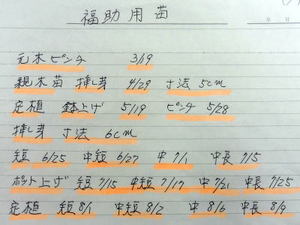 福助用苗
元木ピンチ 3/19
親木苗 挿し芽 4/29 寸法 5cm
定植 鉢上げ 5/19 ピンチ 5/28
挿し芽 寸法 6cm
短 6/25 中短 6/27 中 7/1 中長 7/5
鉢上げ 短 7/15 中短 7/17 中 7/21 中長 7/25
定植 短 8/1 中短 8/2 中 8/6 中長 8/9